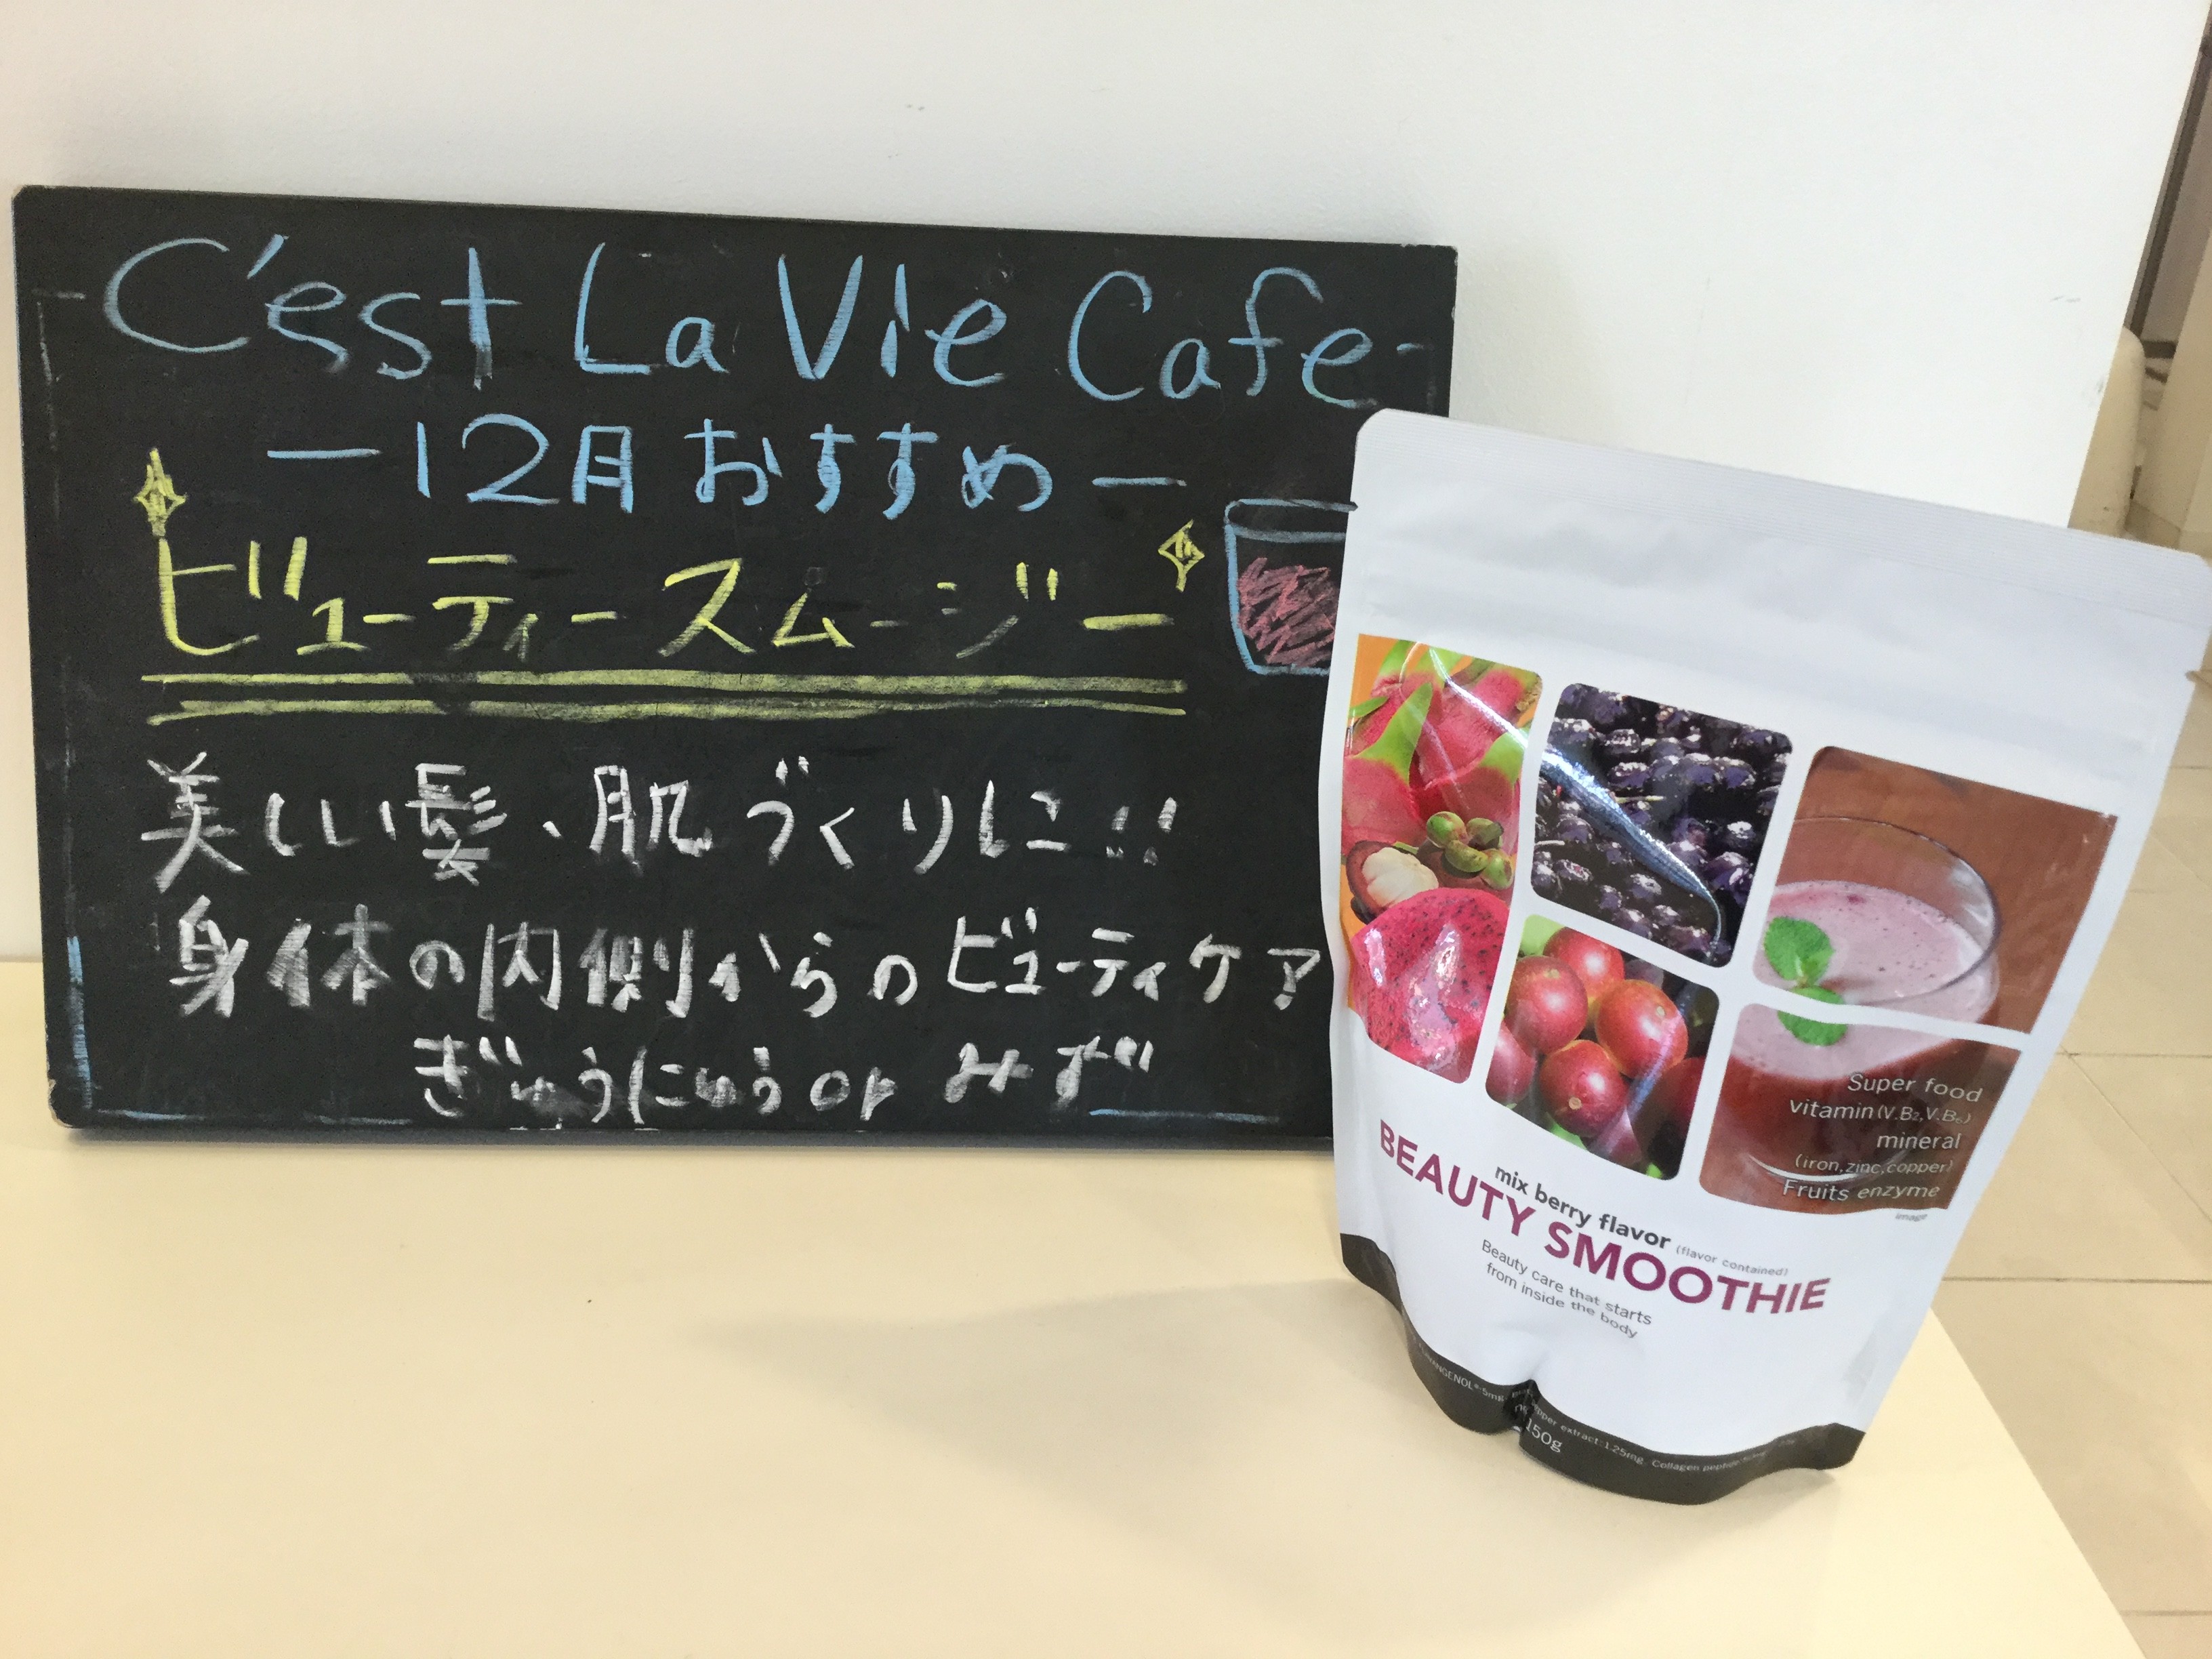 C'est La Vie Cafe
ー12月おすすめー
ビューティースムージー
美しい髪、肌づくりに!!
身体の内側からのビューティケア
ぎゅうにゅう or みず
Super food
vitamin(V.B₂,V.B₆)
mineral
(iron,zinc,copper)
Fruits enzyme
image
mix berry flavor (flavor contained)
BEAUTY SMOOTHIE
Beauty care that starts
from inside the body
extract:1.25mg, Collagen
150g